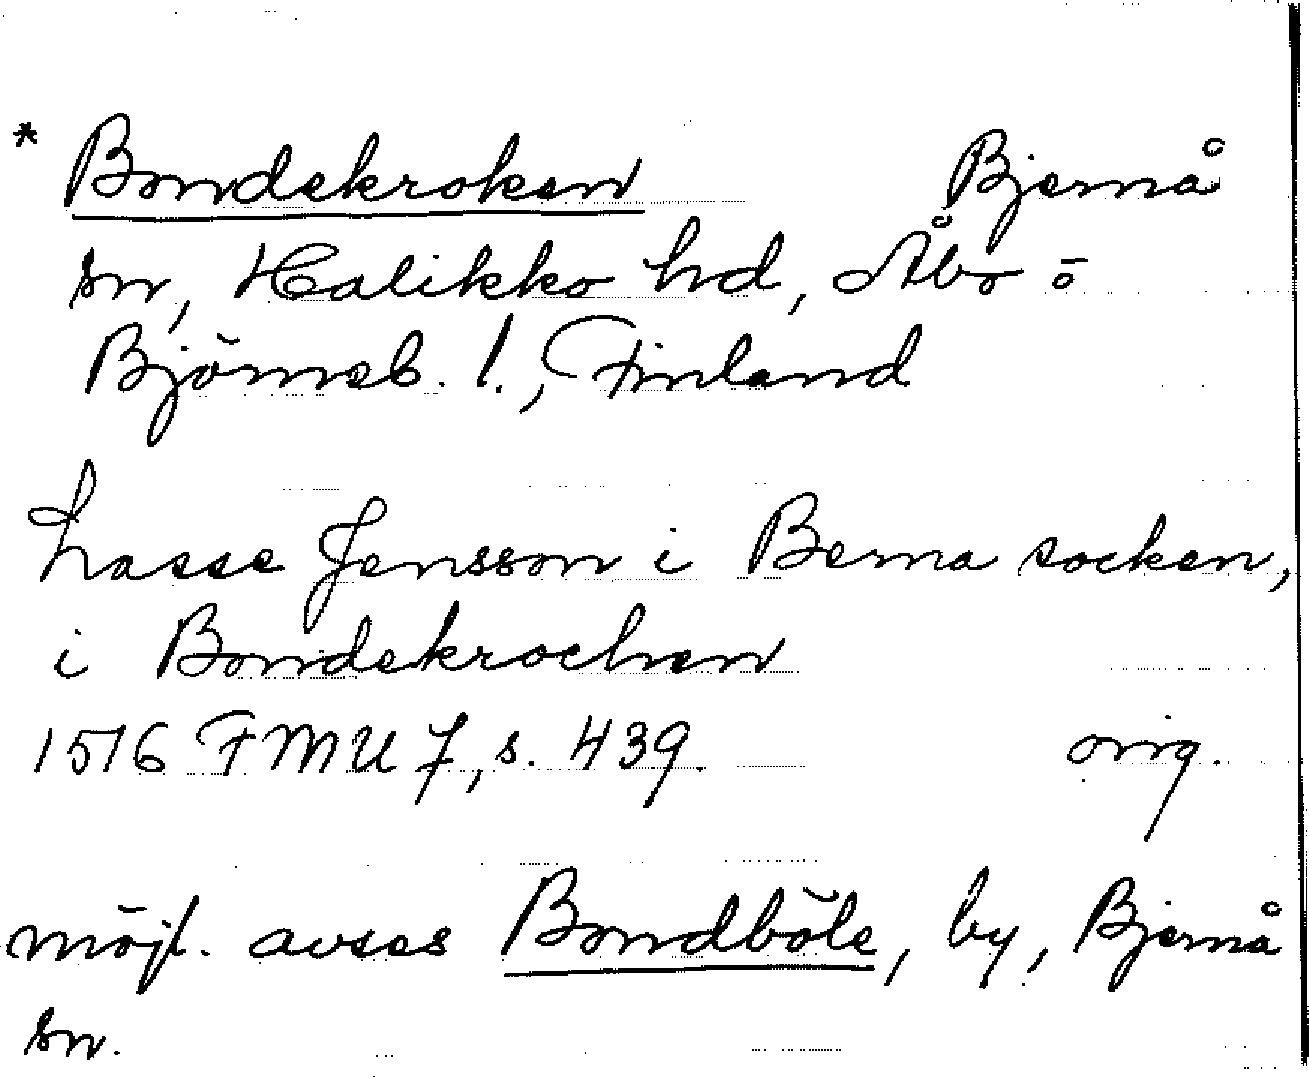 * Bondekroken Bjernå
sn, Halikko hd, Åbo o
Björneb. l., Finland
Lasse Jensson i Berna socken,
i Bondekrochen
1516 FMU 7, s. 439. orig.
möjl. avses Bondböle, by, Bjernå
sn.